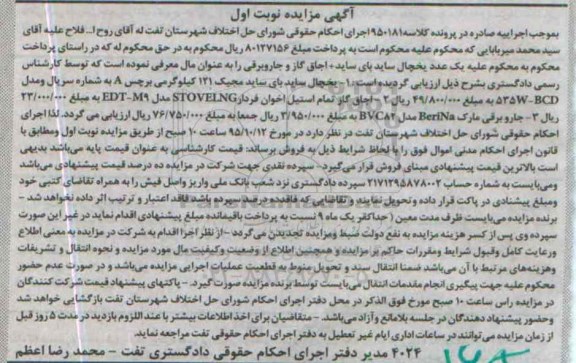 آگهی مزایده نوبت اول
بموجب اجراییه صادره در پرونده کلاسه ۹۵۰۱۸۱ اجرای احکام حقوقی شورای حل اختلاف شهرستان تفت له آقای روح ا... فلاح علیه آقای
سید محمد میربابایی که محکوم علیه محکوم است به پرداخت مبلغ ۸۰۱۳۷۱۵۶ ریال محکوم به در حق محکوم له که در راستای پرداخت
محکوم به محکوم علیه یک عدد یخچال ساید بای ساید - اجاق گاز و جاروبرقی را به عنوان مال معرفی نموده است که توسط کارشناس
رسمی دادگستری بشرح ذیل ارزیابی گردیده است ۱- یخچال ساید بای ساید مجیک ۱۳۱ کیلوگرمی برچسی A به شماره سریال ومدل
۵۳۵W-BCD به مبلغ ۴۹/۸۰۰/۰۰۰ ریال ۲- اجاق گاز تمام استیل اخوان فردار STOVELNG مدل EDT-M۹ به مبلغ ۲۳/۰۰۰/۰۰۰
ریال ۳- جارو برقی مارک BeriNa مدل BVC۸۲ به مبلغ ۳/۹۵۰/۰۰۰ ریال جمعا به مبلغ ۷۶/۷۵۰/۰۰۰ ریال ارزیابی می گردد. لذا اجرای
احکام حقوقی شورای حل اختلاف شهرستان تفت در نظر دارد در مورخ ۹۵/۱۰/۱۲ ساعت ۱۰ صبح از طریق مزایده نوبت اول ومطابق با
قانون اجرای احکام مدنی اموال فوق را با لحاظ شرایط ذیل به فروش برساند: قیمت کارشناسی به عنوان قیمت پایه می باشد بدیهی
است بالاترین قیمت پیشنهادی مبنای فروش قرار می گیرد- سپرده نقدی جهت شرکت در مزایده ده درصد قیمت پیشنهادی می باشد
ومی بایست به شماره حساب ۲۱۷۱۲۹۵۸۷۸۰۰۲ سپرده دادگستری نزد شعب بانک ملی واریز واصل فیش را به همراه تقاضای کتبی خود
ومبلغ پیشنهادی در پاکت قرار داده و تحویل نمایند و تقاضایی که فاقد ده درصد سپرده باشد فاقد اعتبار و ترتیب اثر داده نخواهد شد -
برنده مزایده می بایست ظرف مدت معین (حداکثر یک ماه) نسبت به پرداخت باقیمانده مبلغ پیشنهادی اقدام نماید در غیر این صورت
سپرده وی پس از کسر هزینه مزایده به نفع دولت ضبط ومزایده تجدید می گردد - از نظر اجرا اقدام به شرکت در مزایده به معنی اطلاع
ورعایت کامل وقبول شرایط ومقررات حاکم بر مزایده و همچنین اطلاع از وضعیت وکیفیت مال مورد مزایده و نحوه انتقال و تشریفات
وهزینه های مرتبط با آن می باشد ضمنا انتقال سند و تحویل منوط به قطعیت عملیات اجرایی مزایده می باشد و در صورت عدم حضور
محکوم علیه جهت پیگیری انجام مقدمات انتقال می بایست توسط برنده مزایده صورت گیرد. - پاکتهای پیشنهاد قیمت شرکت کنندگان
در مزایده راس ساعت ۱۰ صبح مورخ فوق الذکر در محل دفتر اجرای احکام شورای حل اختلاف شهرستان تفت بازگشایی خواهد شد
وحضور پیشنهاد دهندگان در جلسه بلامانع وآزاد می باشد. - متقاضیان برای اخذ اطلاعات بیشتر با عند اللزوم بازدید در مدت ۵ روز قبل
از زمان مزایده می توانند در ساعات اداری ایام غیر تعطیل به دفتر اجرای احکام حقوقی تفت مراجعه نماید.
۴۰۲۴ مدیر دفتر اجرای احکام حقوقی دادگستری تفت - محمد رضا اعظم